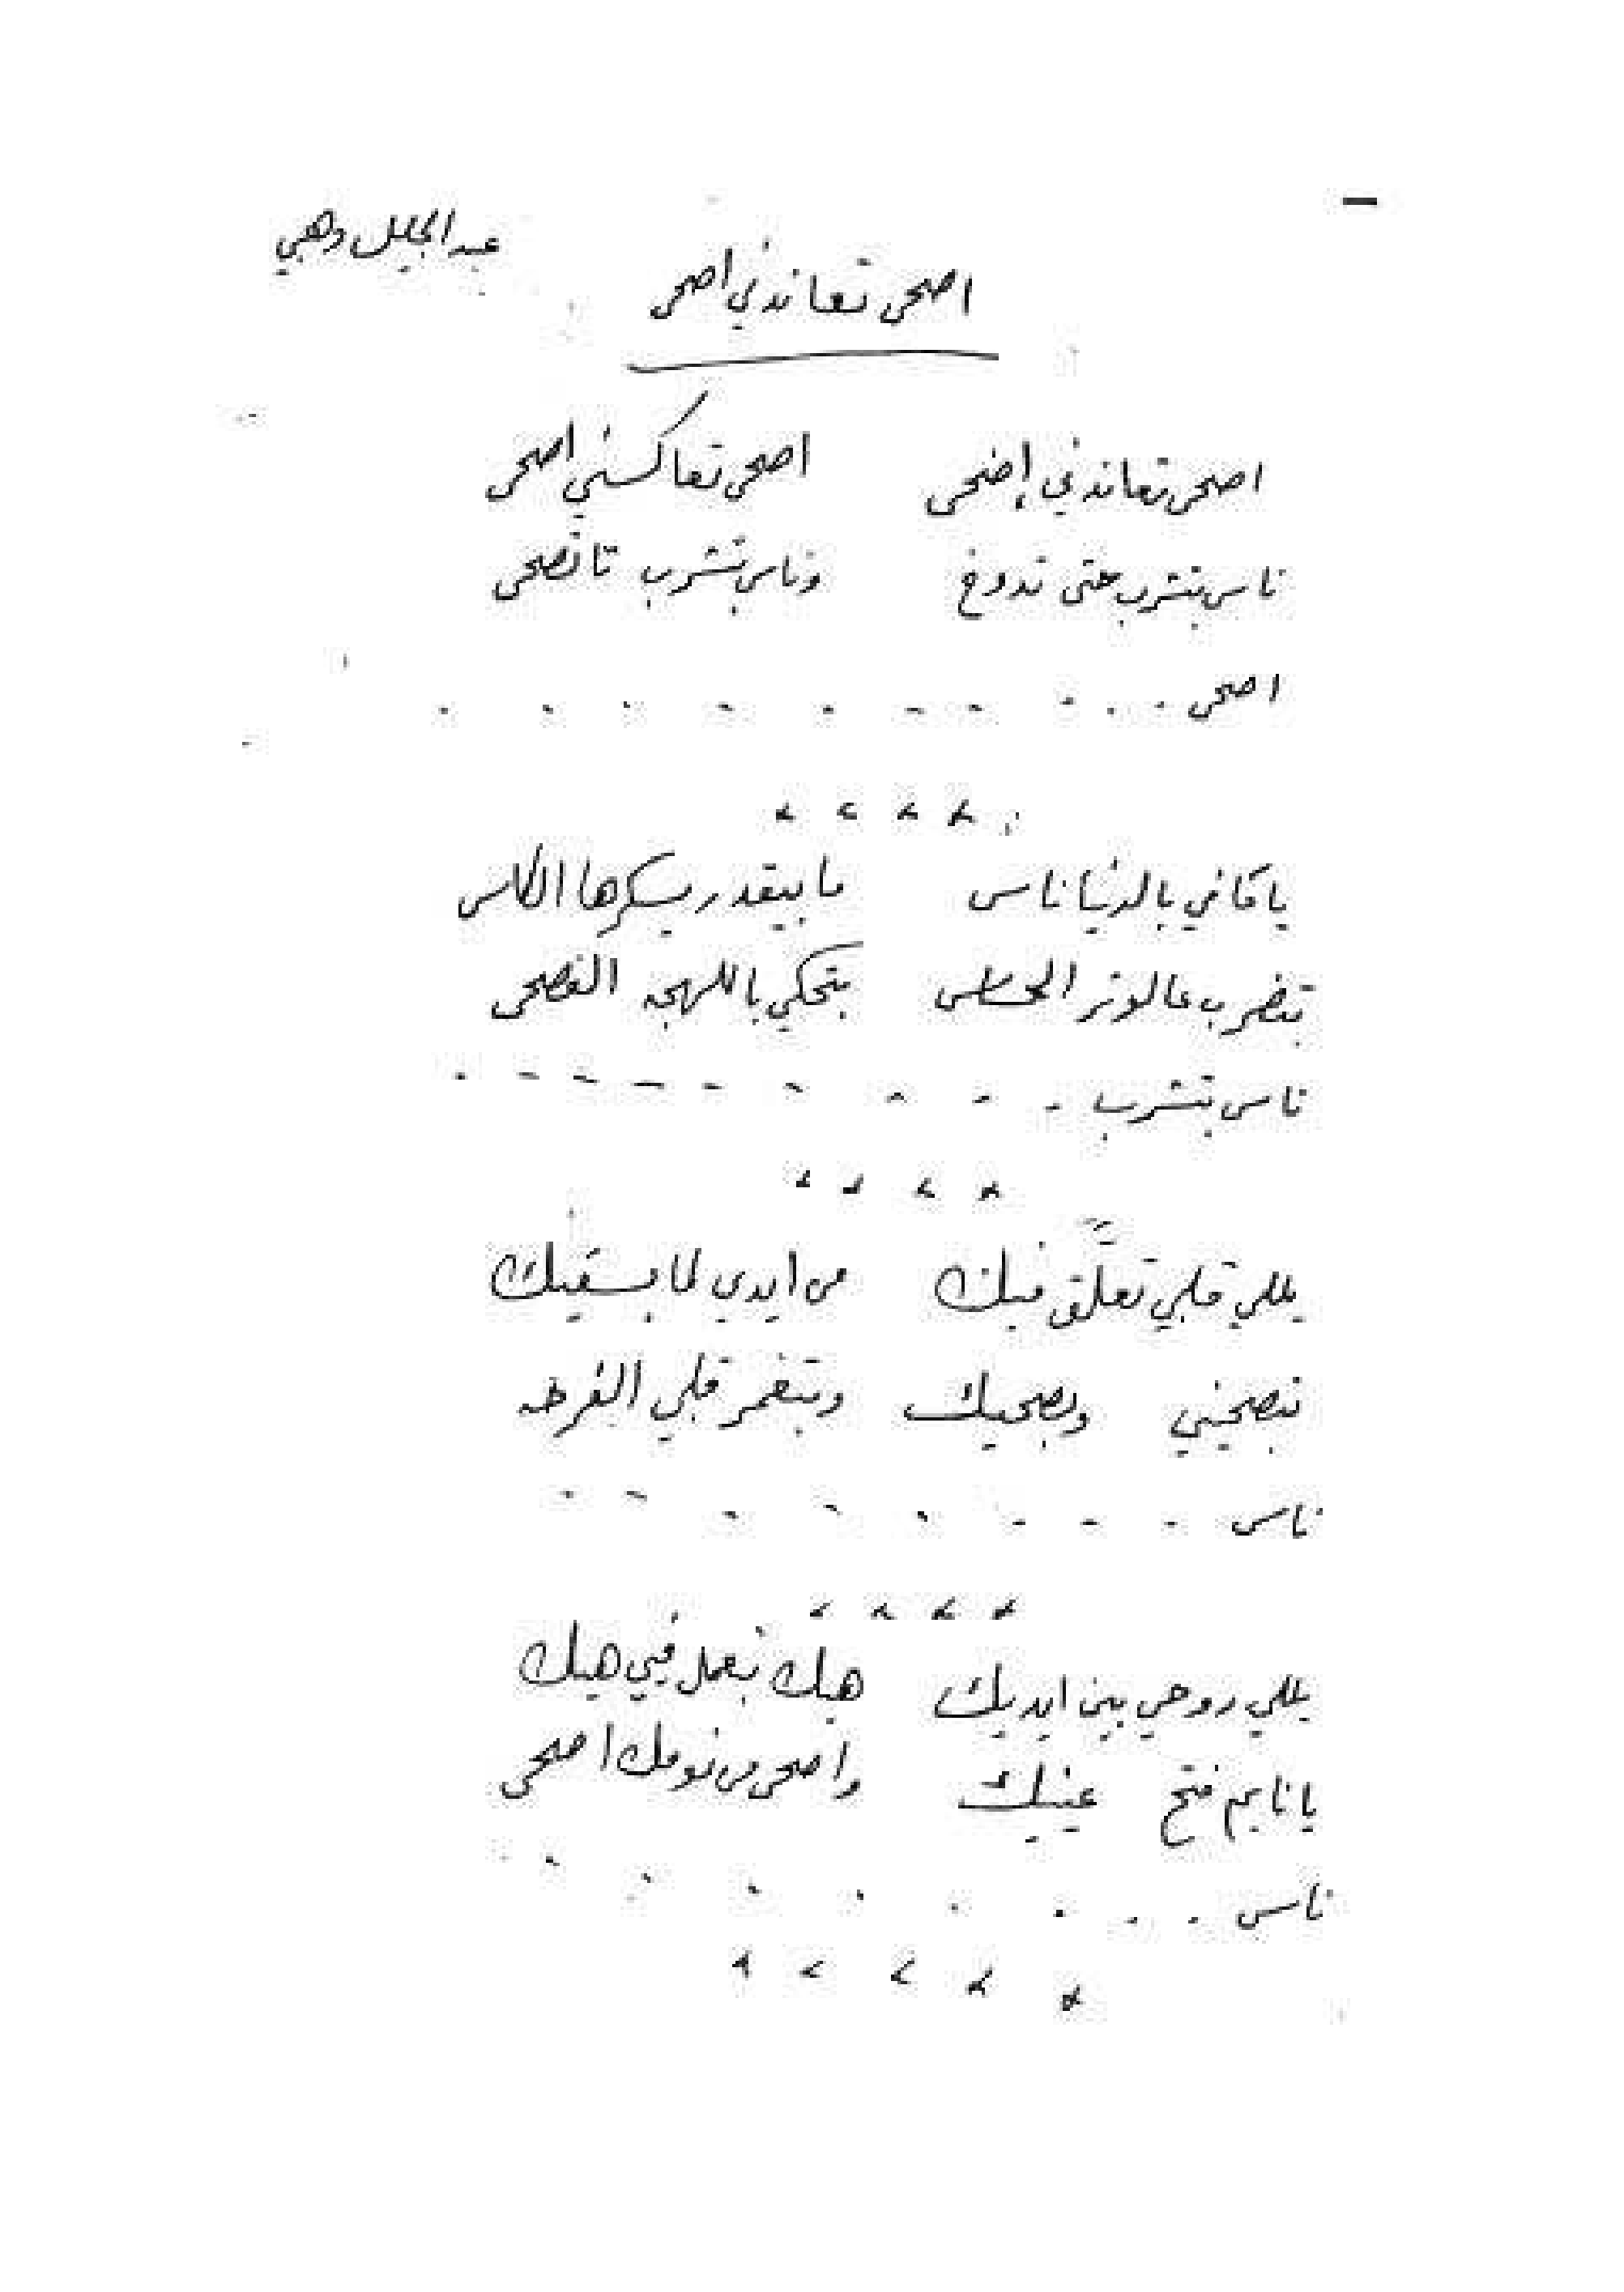 عبد الجليل وهبي
اصحى تعاندني اصحى
اصحى تعاندني إضحى اصحى تعاكسني اصحى
ناس بتشرب حتى تدوخ وناس بتشرب تا تصحى
اصحى . . . - - . - . . .
يا ما في بالدنيا ناس ما بيقدر يسكرها الكاس
بتضرب عالوتر الحساس بتحكي باللهجه الفصحى
ناس بتشرب - - - - - - - - -
يللي قلبي تعلّق فيك من ايدي لما بسقيك
بتصحيني وبصحيك وبتغمر قلبي الفرحه
ناس - - - - - - - -
يللي روحي بين ايديك هيك بتعمل فيي هيك
يا نايم فتح عينيك واصحى من نومك اصحى
ناس . . . . . . . .